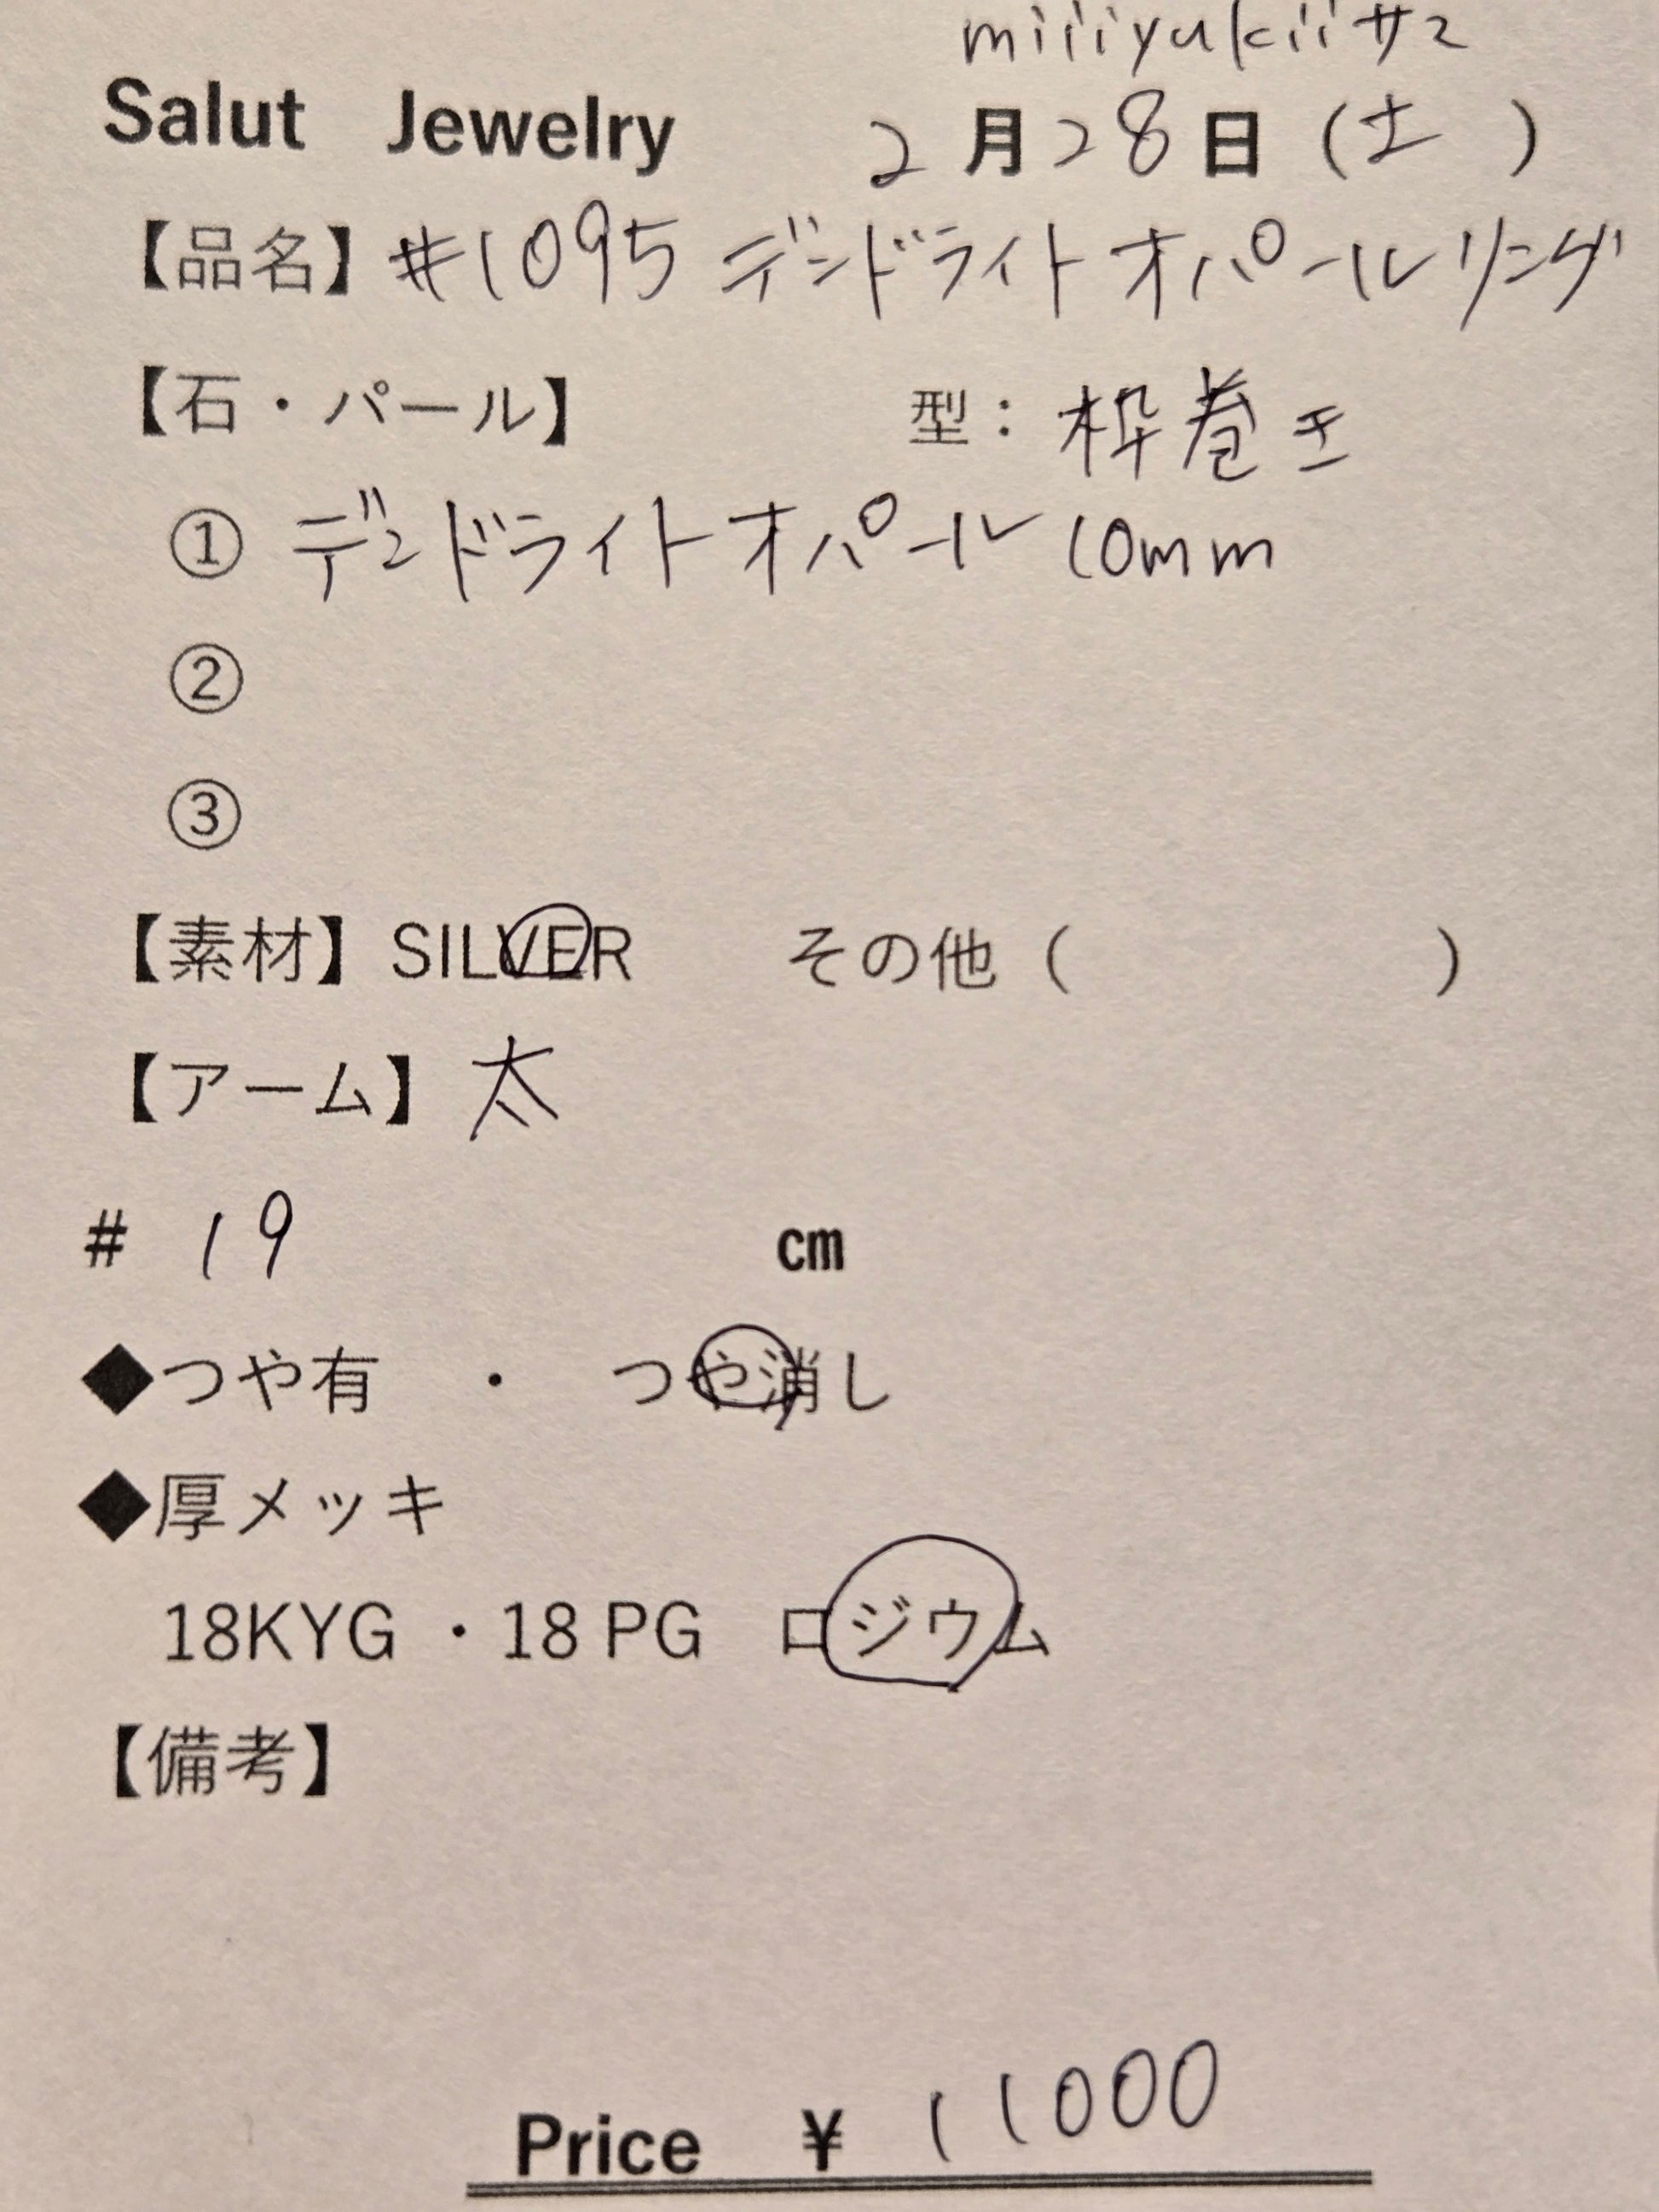 miiiyukiiサマ
Salut Jewelry 2月28日(土)
【品名】#1095 デンドライトオパールリング
【石・パール】 型：枠巻き
① デンドライトオパール 10mm
②
③
【素材】SILVER その他（ ）
【アーム】太
# 19 cm
◆つや有 ・ つや消し
◆厚メッキ
18KYG ・18 PG ロジウム
【備考】
Price ¥ 11000